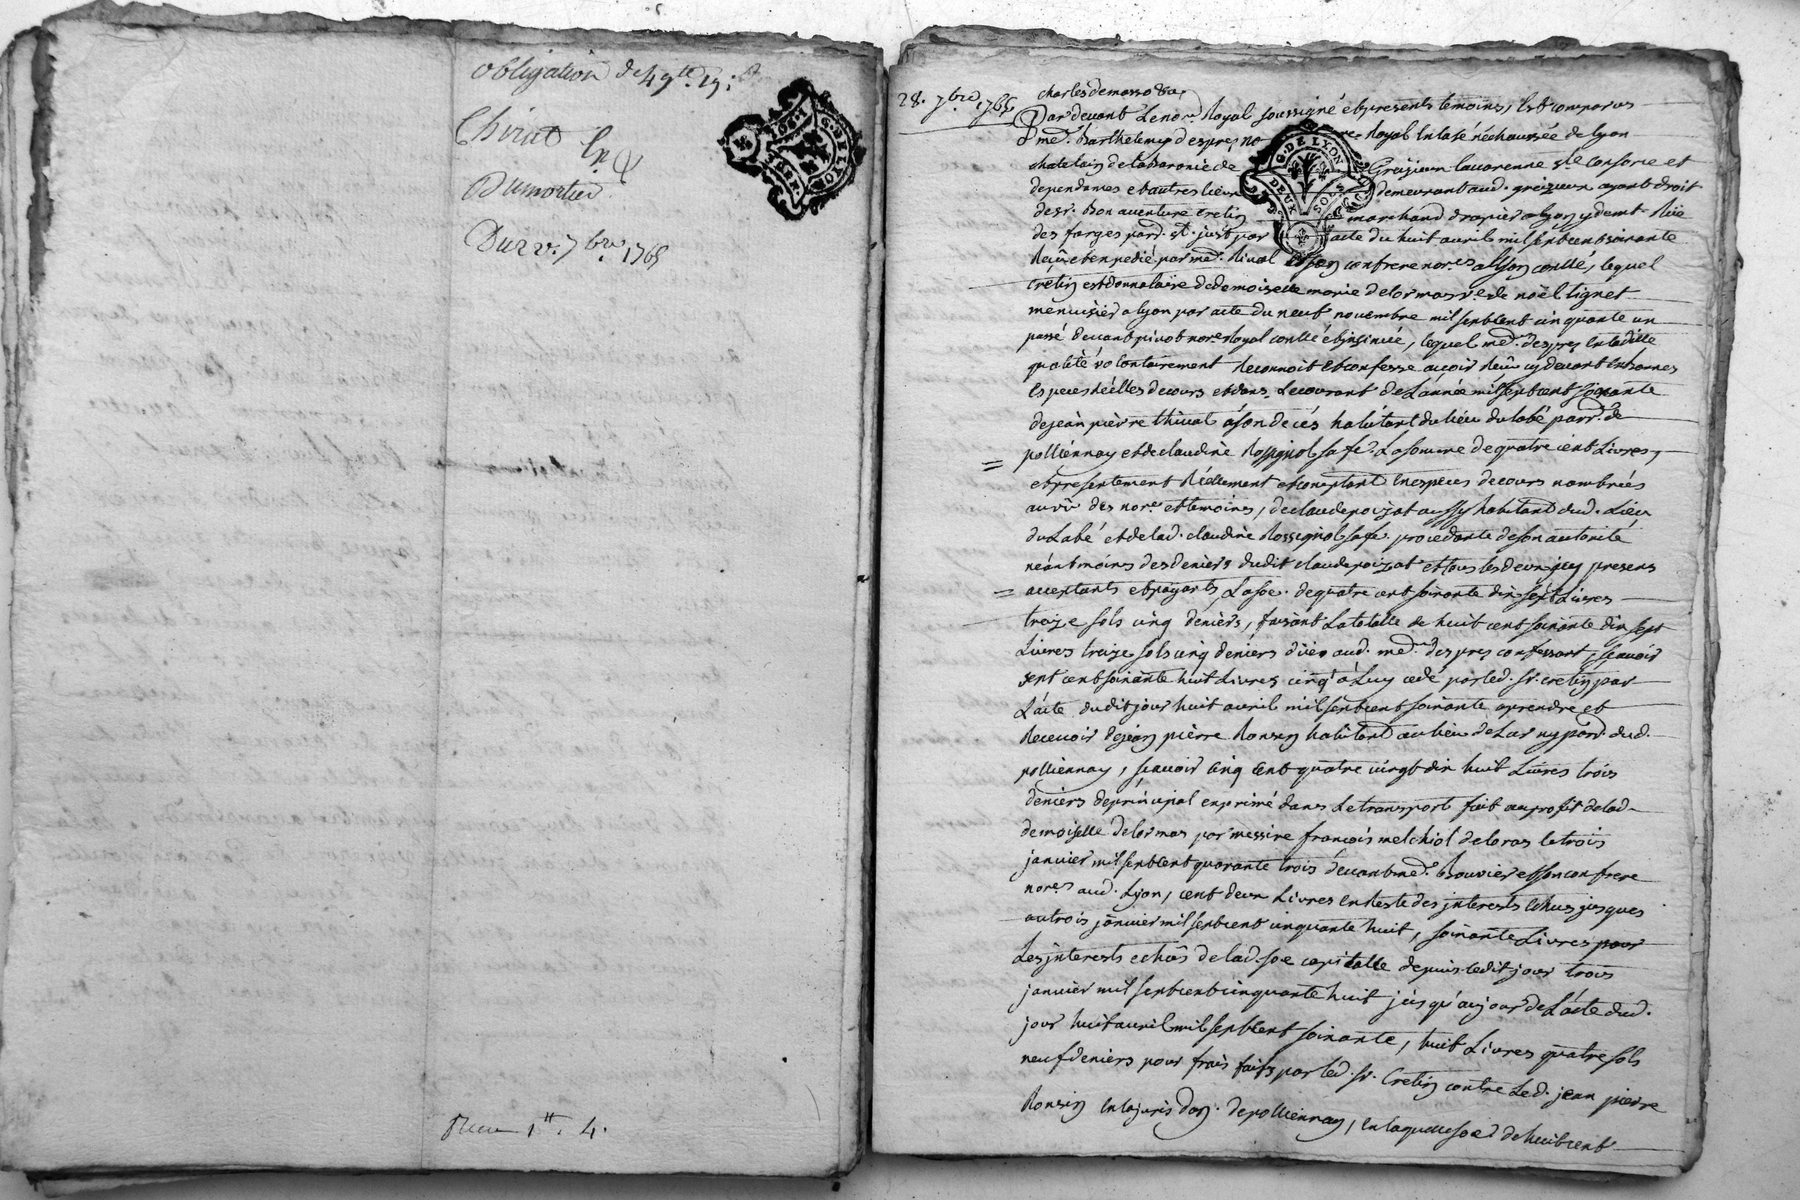 obligation de 49 tt. 15 s
Chirat
Dumortier
Du 22e. 7bre. 1765
Reçu 1 tt. 4.
G. DE LYON
28. 7bre 1765
charles demasso &a
Par devant Le nore. Royal soussigné et presents temoins, est comparus
me. Barthelemy despres no re Royal en la sénéchaussée de lyon
chatelain de la Baronie de Greizieu Lavarenne ste. consorce et
dependances et autres lieux demeurant aud. greizieu ayant droit
de sr. Bonaventure cretin marchand drapier a lyon y demt. Rüe
des forges parr. st. just par acte du huit avril mil sept cent soixante
Reçû et expedié par me. Rival et son confrere nores. a lyon conllé, lequel
cretin est donnataire de demoiselle marie delormas ve. de noël lignet
menuisier a lyon par acte du neuf novembre mil sept cent cinquante un
passé devant pivot nore. Royal conllé et insinué, lequel me. despres en ladite
qualité volontairement Reconnoit et confesse avoir Reçû cy devant en bonnes
especes réelles de cours et dans Le courant de L'année mil sept cent soixante
de jean pierre thival a son decés habitant du lieu du labé parr. de
polliennay et de claudine Rossignol sa fe. La somme de quatre cent Livres,
et presentement Réellement et comptant en especes de cours nombrées
au vû des nore. et temoins, de claude poizat aussy habitant dud. Lieu
du Labé et de lad. claudine Rossignol sa fe. procedante de son autorité
néantmoins des deniers dudit claude poizat et tous les deux icy presens
acceptants et payants, La soe. de quatre cent soixante dix sept Livres
treize sols cinq deniers, faisant La totalle de huit cent soixante dix sept
Livres treize sols cinq deniers düe aud. me. despres confessant, sçavoir
sept cent soixante huit Livres cinq s a Luy cedé par led. sr. cretin par
L'acte dudit jour huit avril mil sept cent soixante a prendre et
Recevoir de jean pierre Ronzin habitant au lieu de Larny parr. dud.
polliennay, sçavoir cinq cent quatre vingt dix huit Livres trois
deniers de principal exprimé dans Le transport fait au profit de lad.
demoiselle delormas par messire françois melchiol deloras le trois
janvier mil sept cent quarante trois devant me. Bouvier et son confrere
nores. aud. Lyon, cent deux Livres en reste des interests echus jusques
au trois janvier mil sept cent cinquante huit, soixante Livres pour
Les interests echûs de lad. soe capitalle depuis ledit jour trois
janvier mil sept cent cinquante huit jusqu'au jour de L'acte dud.
jour huit avril mil sept cent soixante, huit Livres quatre sols
neuf deniers pour frais faits par led. sr. Cretin contre Led. jean pierre
Ronzin en la juris don. de polliennay, en laquelle soe de huit cent